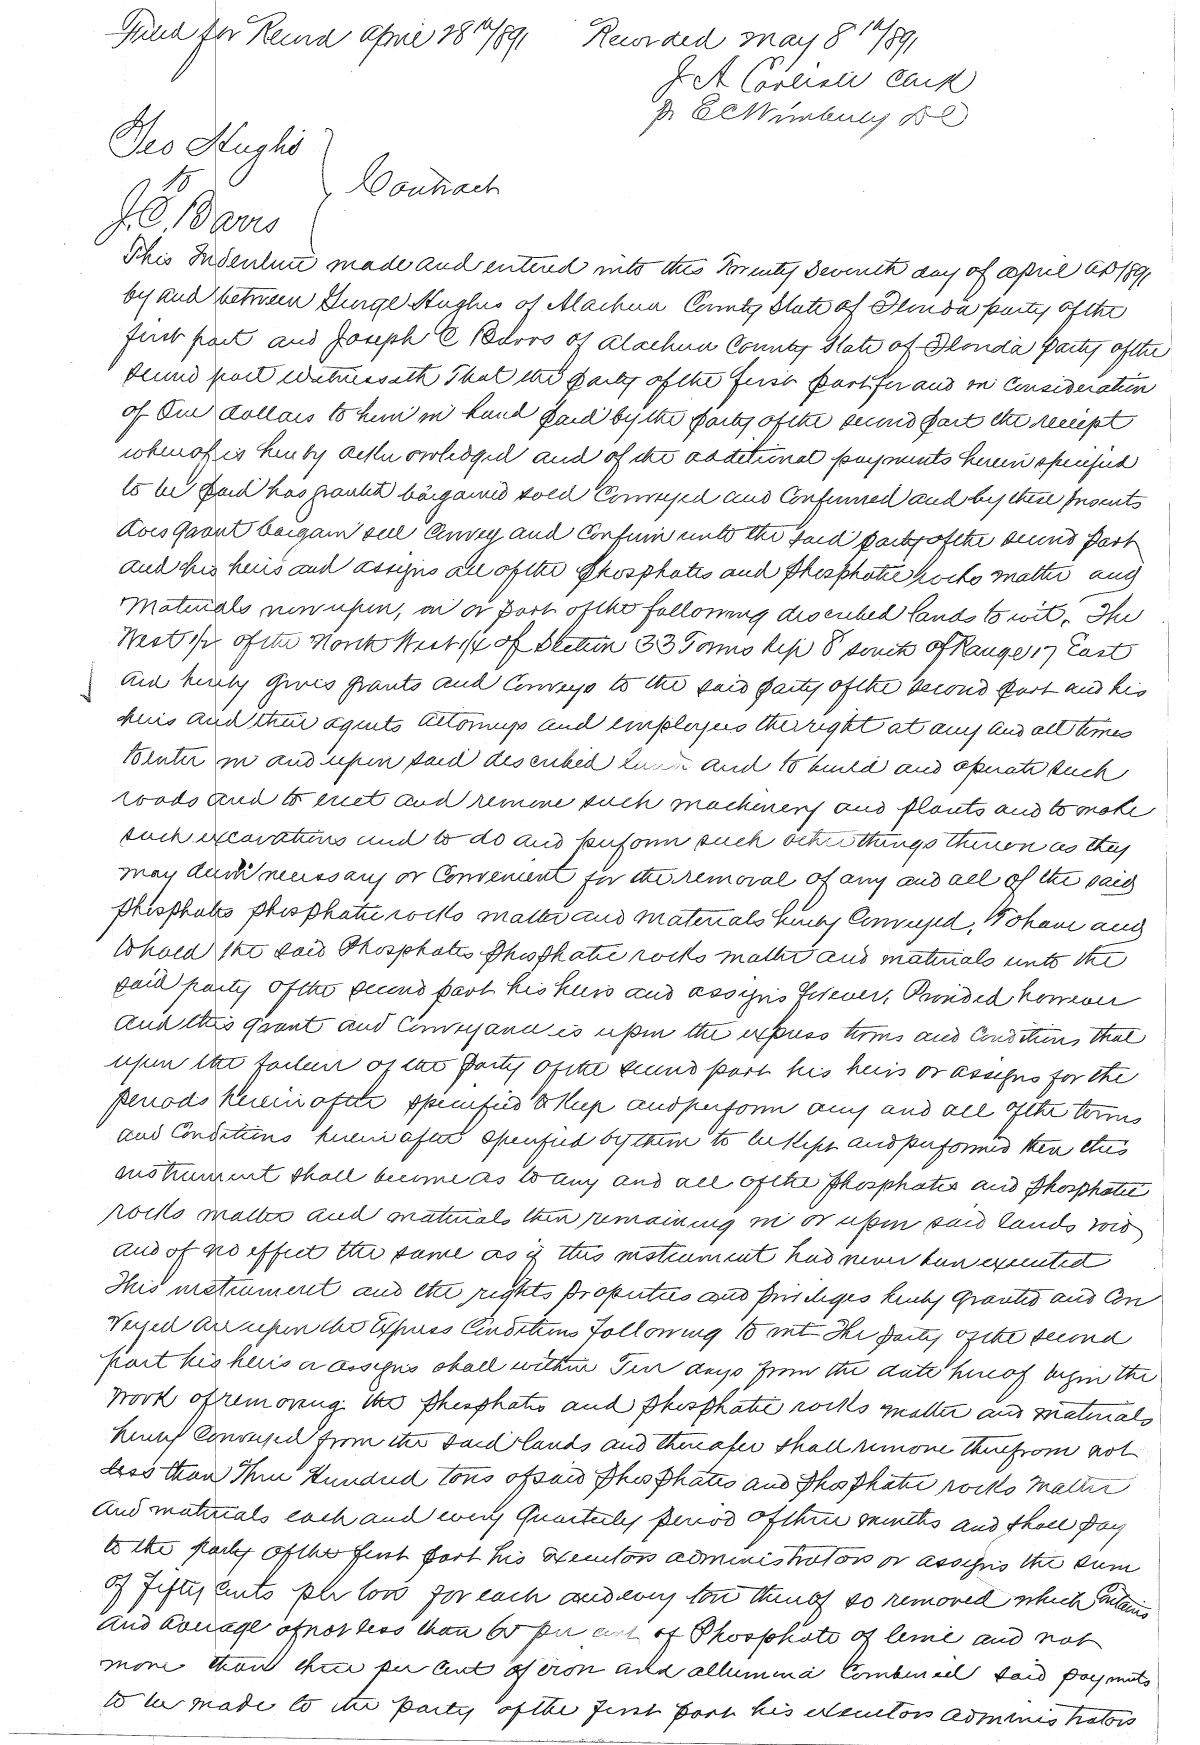 Filed for Record April 28th/891 Recorded May 8th/891
J A Carlisle Clerk
pr E C Wimberly D C
Geo Hughs
to
Contract
J. C. Barrs
This Indenture made and entered into this Twenty Seventh day of April AD 1891
by and between George Hughs of Alachua County State of Florida party of the
first part and Joseph C Barrs of Alachua County State of Florida Party of the
second part Witnesseth That the party of the first part for and in Consideration
of One dollars to him in hand paid by the party of the second part the receipt
whereof is hereby acknowledged and of the additional payments herein specified
to be paid has granted bargained sold Conveyed and Confirmed and by these presents
does grant bargain sell Convey and Confirm unto the said party of the second part
and his heirs and assigns all of the phosphates and phosphatic rocks matter and
materials now upon, in or part of the following described lands to wit, The
West 1/2 of the North West 1/4 of Section 33 Township 8 south of Range 17 East
and hereby gives grants and Conveys to the said party of the second part and his
heirs and their agents attorneys and employees the right at any and all times
to enter in and upon said described lands and to build and operate such
roads and to erect and remove such machinery and plants and to make
such excavations and to do and perform such other things thereon as they
may deem necessary or Convenient for the removal of any and all of the said
phosphates phosphatic rocks matter and materials hereby Conveyed, To have and
to hold the said Phosphates phosphatic rocks matter and materials unto the
said party of the second part his heirs and assigns forever, Provided however
and this grant and Conveyance is upon the express terms and Conditions that
upon the failure of the party of the second part his heirs or assigns for the
periods hereinafter specified to keep and perform any and all of the terms
and Conditions hereinafter specified by them to be kept and performed then this
instrument shall become as to any and all of the phosphates and phosphatic
rocks matter and materials then remaining in or upon said lands void
and of no effect the same as if this instrument had never been executed
This instrument and the rights properties and privileges hereby granted and Con
veyed are upon the Express Conditions following to wit The party of the second
part his heirs or assigns shall within Ten days from the date hereof begin the
work of removing the phosphates and phosphatic rocks matter and materials
hereby Conveyed from the said lands and thereafer shall remove therefrom not
less than Three Hundred tons of said phosphates and phosphatic rocks matter
and materials each and every Quarterly period of three months and shall pay
to the party of the first part his executors administrators or assigns the sum
of fifty Cents per ton for each and every ton thereof so removed which Contains
and average of not less than 60 per cent of Phosphate of lime and not
more than three per Cents of iron and allumina Combined said payments
to be made to the party of the first part his executors administrators